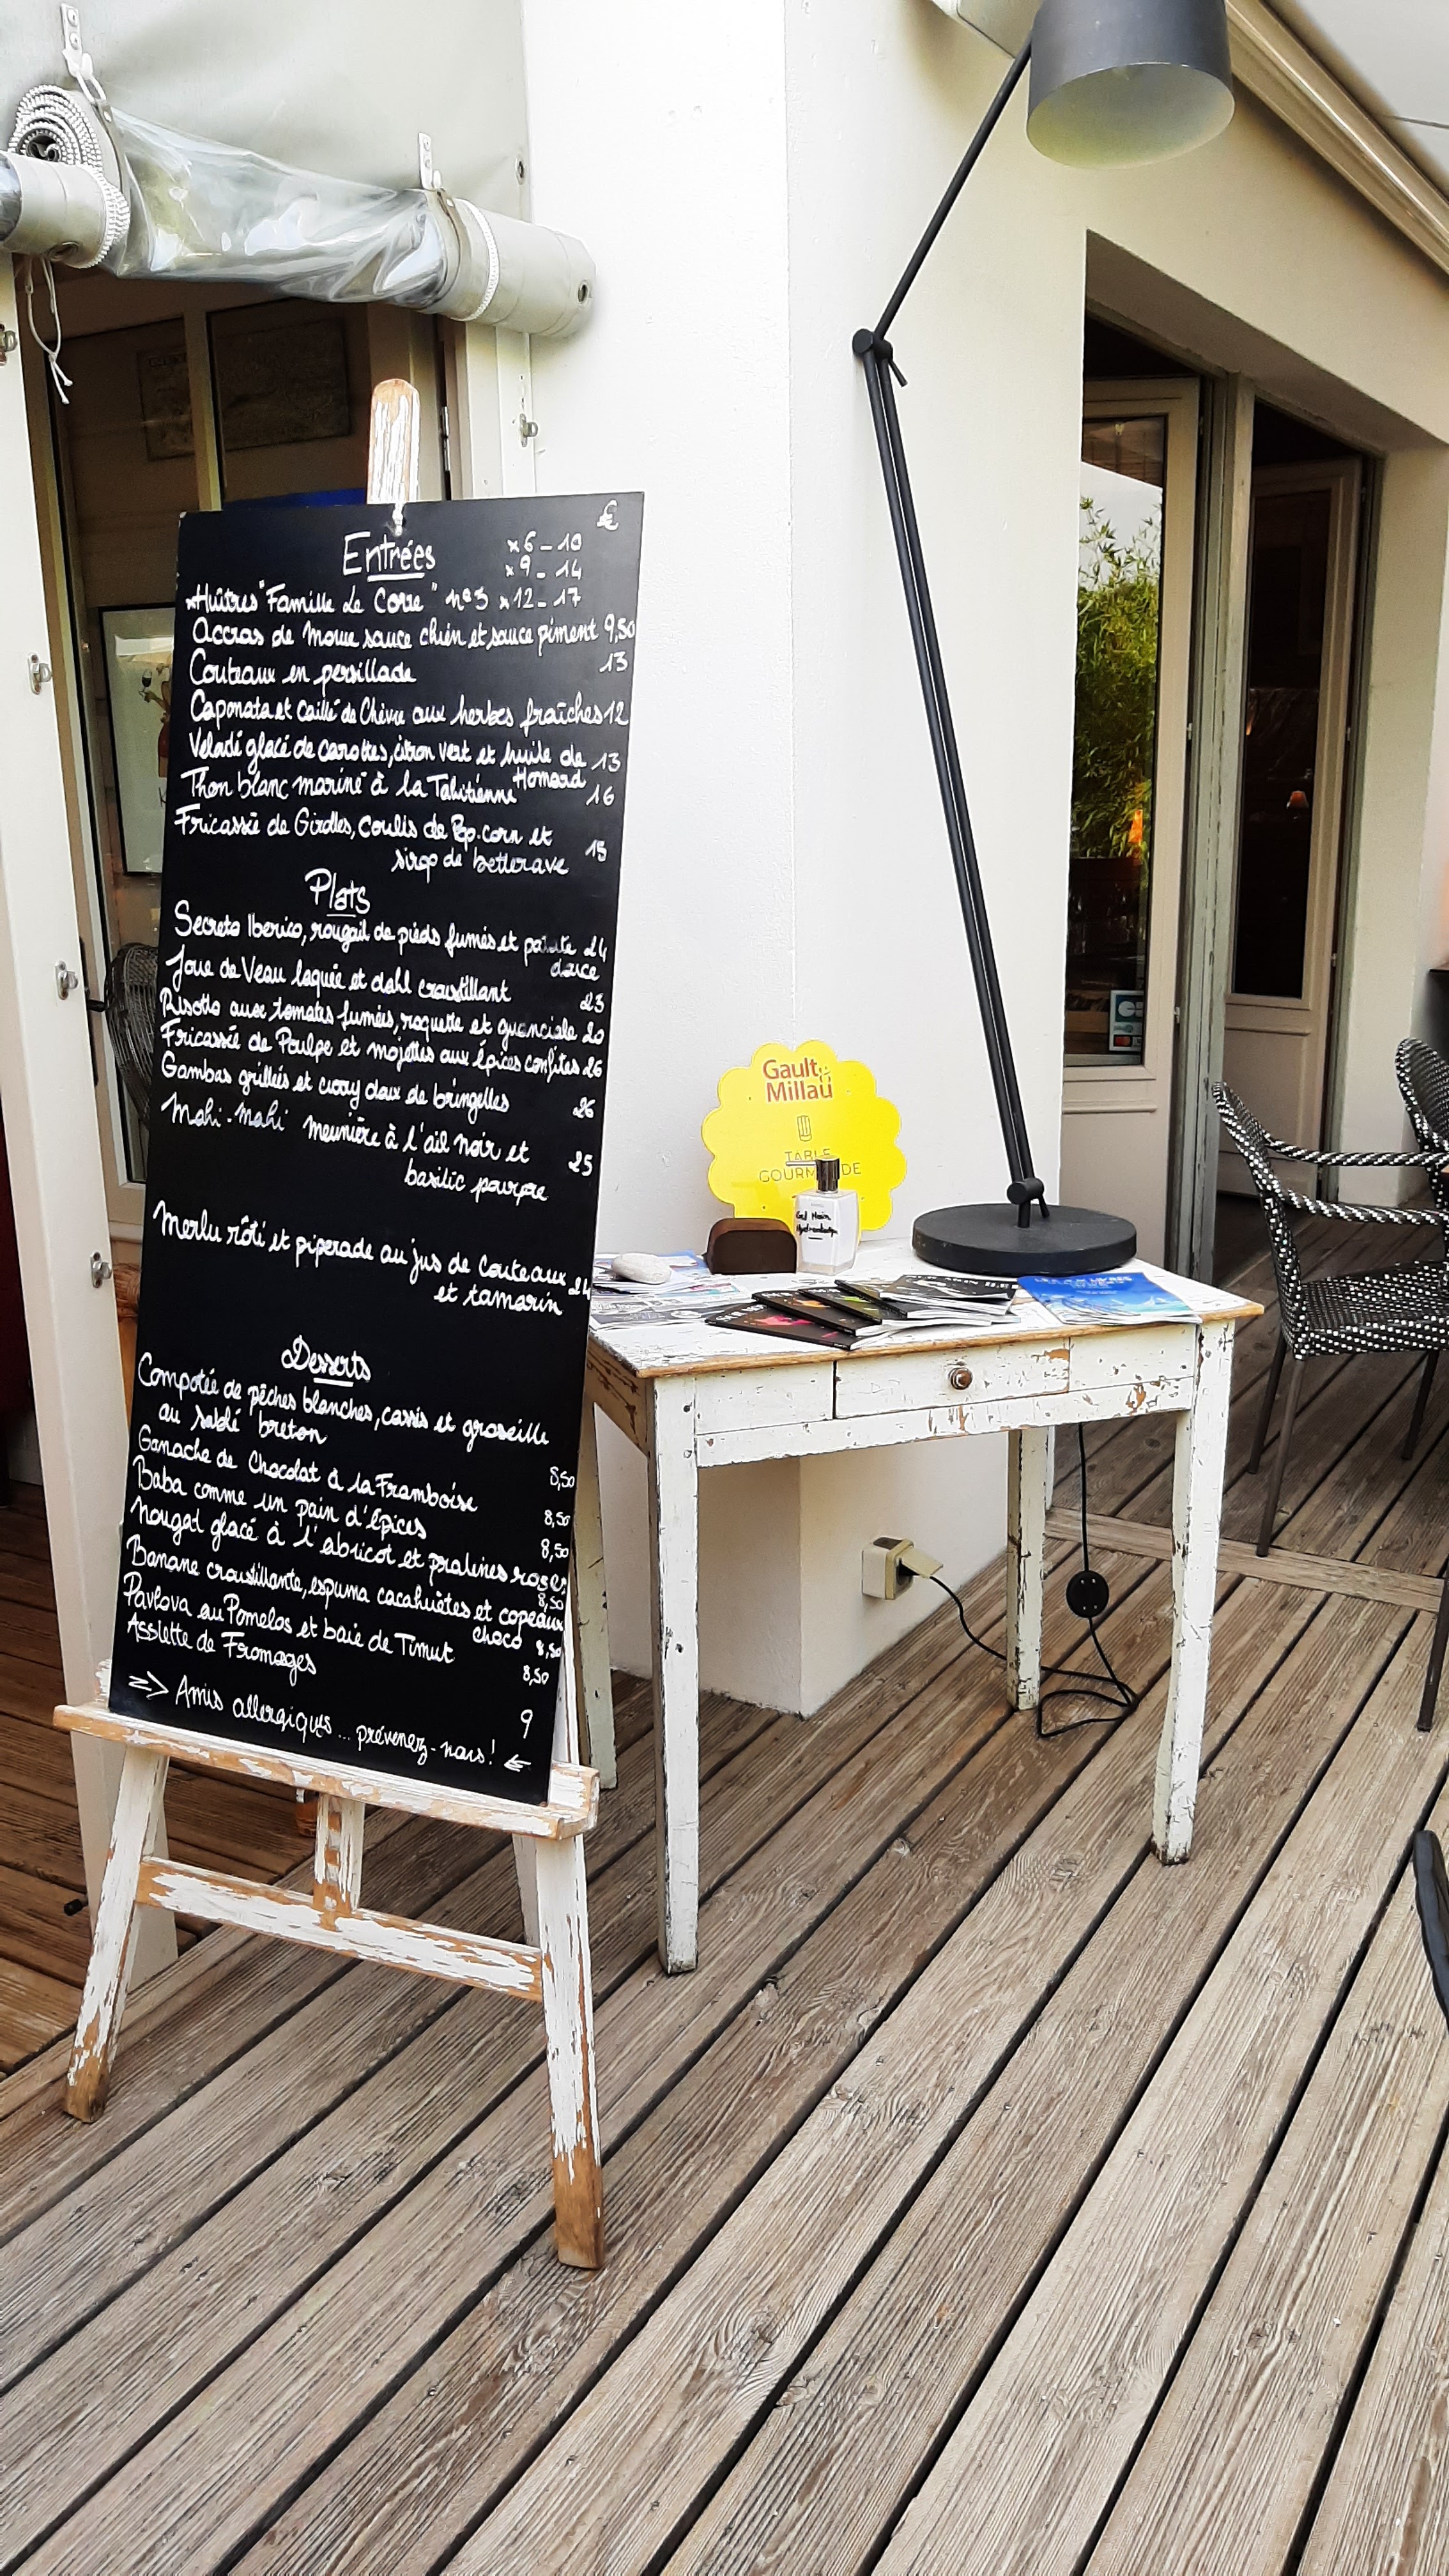 €
Entrées
x6 - 10
x9 - 14
*Huîtres "Famille Le Corre" n°3 x12 - 17
Accras de Morue sauce chien et sauce piment 9,50
Couteaux en persillade 13
Caponata et Caillé de Chèvre aux herbes fraîches 12
Velouté glacé de Carottes, citron vert et huile de 13
Homard
Thon blanc mariné à la Tahitienne 16
Fricassée de Girolles, coulis de Pop.corn et
sirop de betterave 15
Plats
Secreto Iberico, rougail de pieds fumés et patate 24
douce
Joue de Veau laquée et dahl croustillant 23
Risotto aux tomates fumées, roquette et guanciale 20
Fricassée de Poulpe et mojettes aux épices confites 26
Gambas grillées et curry doux de bringelles 26
Mahi-Mahi meunière à l'ail noir et 25
basilic pourpre
Merlu rôti et piperade au jus de Couteaux 24
et tamarin
Desserts
Compotée de pêches blanches, cassis et groseille
au sablé breton 8,50
Ganache de Chocolat à la Framboise 8,50
Baba comme un pain d'épices 8,50
Nougat glacé à l'abricot et pralines roses
8,50
Banane croustillante, espuma cacahuètes et copeaux
choco 8,50
Pavlova au Pomelos et baie de Timut 8,50
Assiette de Fromages 9
=> Amis allergiques ... prévenez-nous! <=
Gault&Millau
TABLE
GOURMANDE
Gel Main